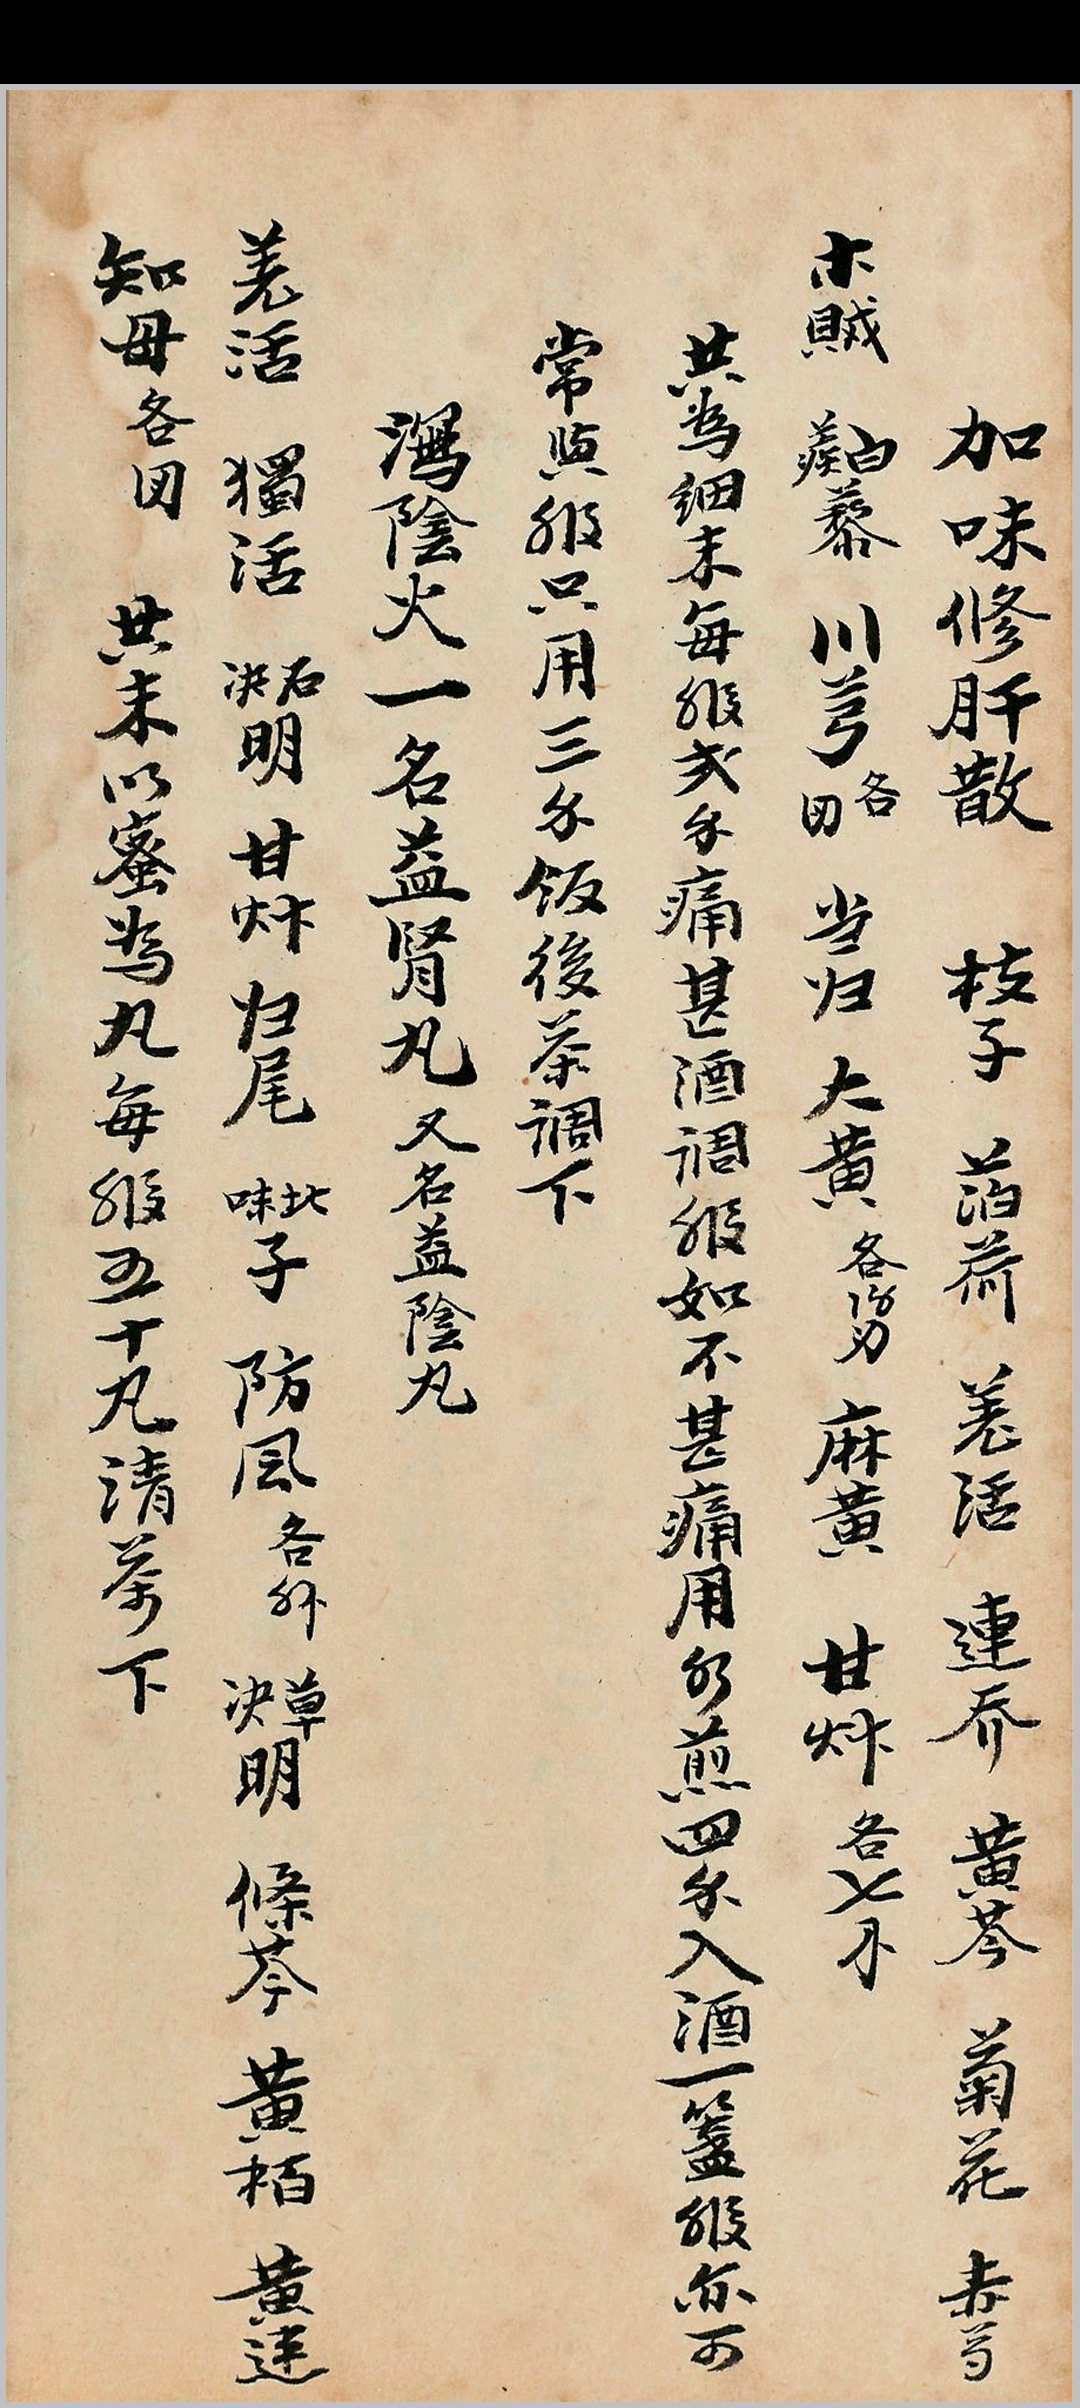 加味修肝散 枝子 泊荷 羌活 連乔 黄芩 菊花 赤芍
木賊 白蒺藜 川芎 各 当归 大黄 各 麻黄 甘艸 各七
共為細末每服弍分痛甚酒調服如不甚痛用水煎四分入酒一盞服亦可
常與服只用三分饭後茶調下
瀉陰火一名益腎丸 又名益陰丸
羌活 獨活 石决明 甘艸 归尾 北味子 防风 各 草决明 條芩 黄栢 黄連
知母 各 共末以蜜為丸每服五十丸清茶下